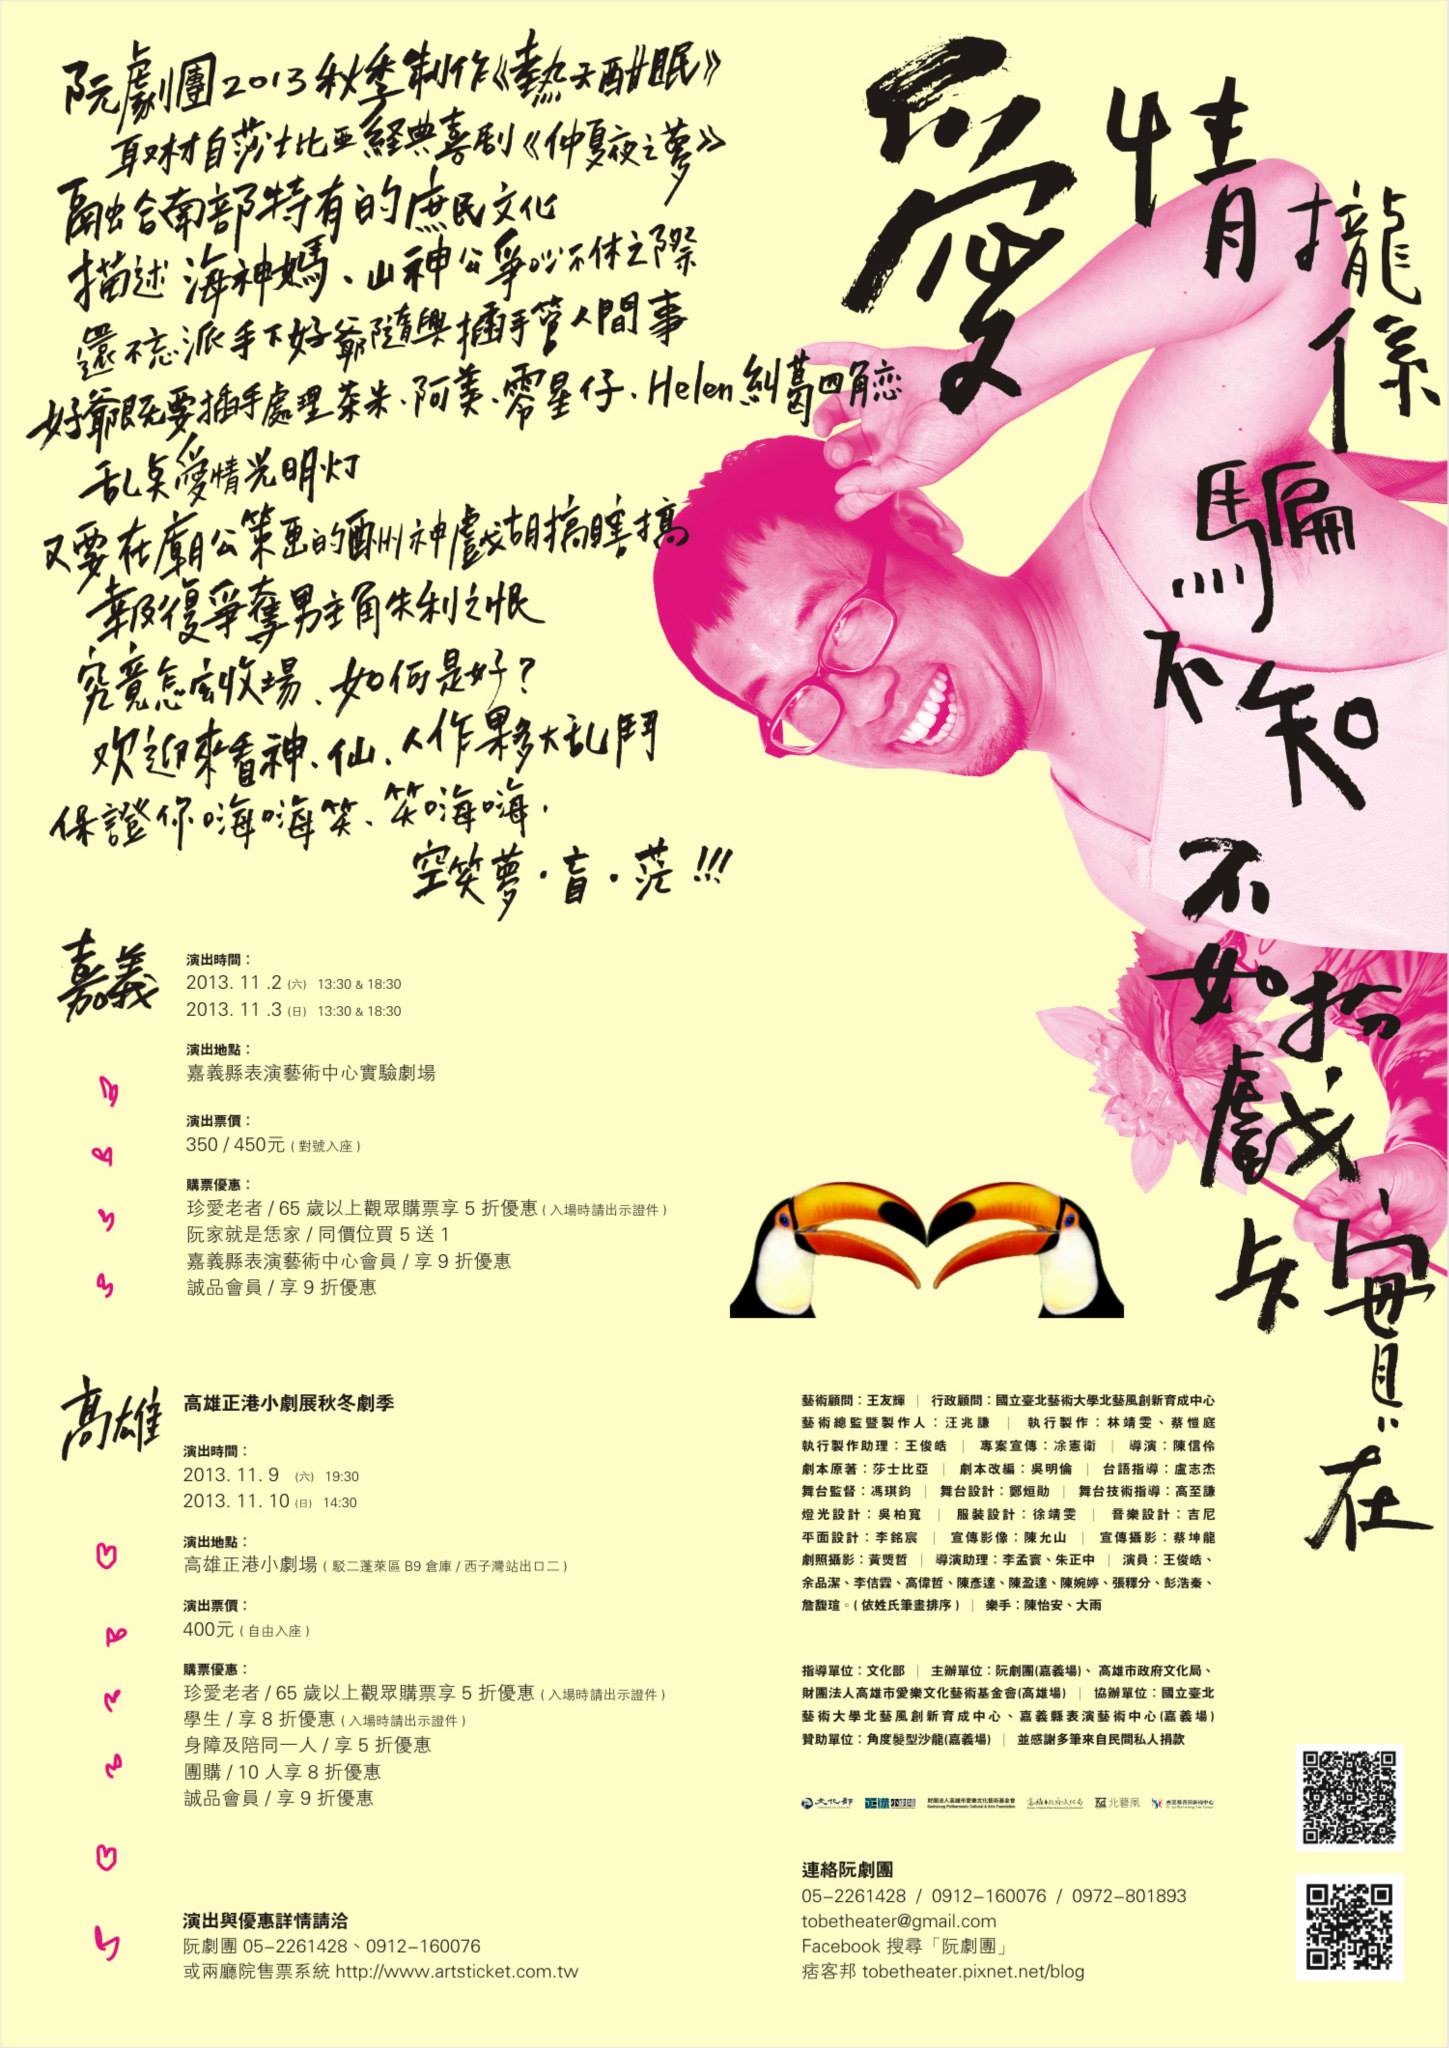 阮劇團2013秋季制作《熱天酣眠》
取材自莎士比亞經典喜劇《仲夏夜之夢》
融合南部特有的庶民文化
描述海神媽、山神公爭吵不休之際
還不忘派手下好爺隨興插手管人間事
好爺既要插手處理茶米、阿美、零星仔、Helen糾葛四角恋
乱点愛情光明灯
又要在廟公策画的酬神戲胡搞瞎搞
報復爭奪男主角失利之恨
究竟怎麼收場、如何是好？
欢迎來看神、仙、人作夥大乱鬥
保證你嗨嗨笑、笑嗨嗨，
空笑夢・盲・茫!!!
愛情攏係騙不知
不如扮戲卡實在
嘉義
演出時間：
2013. 11 .2 (六) 13:30 & 18:30
2013. 11 .3 (日) 13:30 & 18:30
演出地點：
嘉義縣表演藝術中心實驗劇場
演出票價：
350 / 450元 ( 對號入座 )
購票優惠：
珍愛老者 / 65 歲以上觀眾購票享 5 折優惠 ( 入場時請出示證件 )
阮家就是恁家 / 同價位買 5 送 1
嘉義縣表演藝術中心會員 / 享 9 折優惠
誠品會員 / 享 9 折優惠
高雄
高雄正港小劇展秋冬劇季
演出時間：
2013. 11. 9 (六) 19:30
2013. 11. 10 (日) 14:30
演出地點：
高雄正港小劇場 ( 駁二蓬萊區 B9 倉庫 / 西子灣站出口二 )
演出票價：
400元 ( 自由入座 )
購票優惠：
珍愛老者 / 65 歲以上觀眾購票享 5 折優惠 ( 入場時請出示證件 )
學生 / 享 8 折優惠 ( 入場時請出示證件 )
身障及陪同一人 / 享 5 折優惠
團購 / 10 人享 8 折優惠
誠品會員 / 享 9 折優惠
演出與優惠詳情請洽
阮劇團 05–2261428、0912–160076
或兩廳院售票系統 http://www.artsticket.com.tw
藝術顧問：王友輝 ｜ 行政顧問：國立臺北藝術大學北藝風創新育成中心
藝術總監暨製作人：汪兆謙 ｜ 執行製作：林靖雯、蔡愷庭
執行製作助理：王俊皓 ｜ 專案宣傳：凃憲衛 ｜ 導演：陳信伶
劇本原著：莎士比亞 ｜ 劇本改編：吳明倫 ｜ 台語指導：盧志杰
舞台監督：馮琪鈞 ｜ 舞台設計：鄭烜勛 ｜ 舞台技術指導：高至謙
燈光設計：吳柏寬 ｜ 服裝設計：徐靖雯 ｜ 音樂設計：吉尼
平面設計：李銘宸 ｜ 宣傳影像：陳允山 ｜ 宣傳攝影：蔡坤龍
劇照攝影：黃煚哲 ｜ 導演助理：李孟寰、朱正中 ｜ 演員：王俊皓、
余品潔、李佶霖、高偉哲、陳彥達、陳盈達、陳婉婷、張釋分、彭浩秦、
詹馥瑄。( 依姓氏筆畫排序 ) ｜ 樂手：陳怡安、大雨
指導單位：文化部 ｜ 主辦單位：阮劇團(嘉義場)、高雄市政府文化局、
財團法人高雄市愛樂文化藝術基金會(高雄場) ｜ 協辦單位：國立臺北
藝術大學北藝風創新育成中心、嘉義縣表演藝術中心(嘉義場)
贊助單位：角度髮型沙龍(嘉義場) ｜ 並感謝多筆來自民間私人捐款
文化部
正港小劇展
財團法人高雄市愛樂文化藝術基金會
高雄市政府文化局
北藝風
連絡阮劇團
05–2261428 / 0912–160076 / 0972–801893
tobetheater@gmail.com
Facebook 搜尋「阮劇團」
痞客邦 tobetheater.pixnet.net/blog